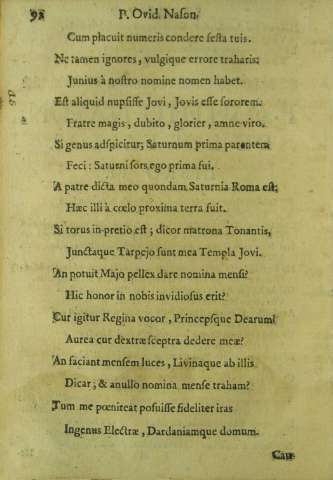 92 P. Ovid. Nason.
Cum placuit numeris condere festa tuis.
Ne tamen ignores, vulgique errore traharis;
Junius à nostro nomine nomen habet.
Est aliquid nupsisse Jovi, Jovis esse sororem.
Fratre magis, dubito, glorier, amne viro.
Si genus adspicitur; Saturnum prima parentem
Feci: Saturni sors ego prima fui.
A patre dicta meo quondam Saturnia Roma est;
Hæc illi à cœlo proxima terra fuit.
Si torus in pretio est; dicor matrona Tonantis,
Junctaque Tarpejo sunt mea Templa Jovi.
An potuit Majo pellex dare nomina mensi?
Hic honor in nobis invidiosus erit?
Cur igitur Regina vocor, Princepsque Dearum?
Aurea cur dextræ sceptra dedere meæ?
An faciant mensem luces, Livinaque ab illis
Dicar; & anullo nomina mense traham?
Tum me pœniteat posuisse fideliter iras
Ingenus Electræ, Dardaniamque domum.
Cau-